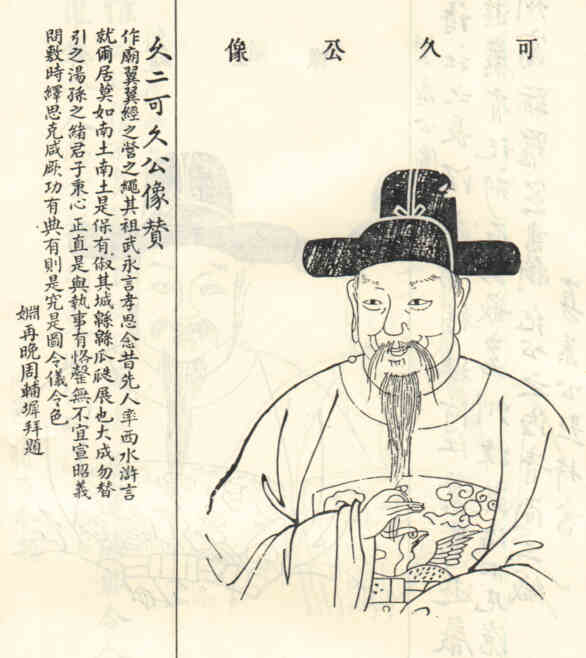 可久公像
文二可久公像贊
作廟翼翼經之營之繩其祖武永言孝思念昔先人率西水滸言
就爾居莫如南土南土是保有俶其城緜緜瓜瓞展也大成勿替
引之湯孫之緒君子秉心正直是與執事有恪罄無不宜宣昭義
問敷時繹思克咸厥功有典有則是究是圖令儀令色
姻再晚周輔墀拜題